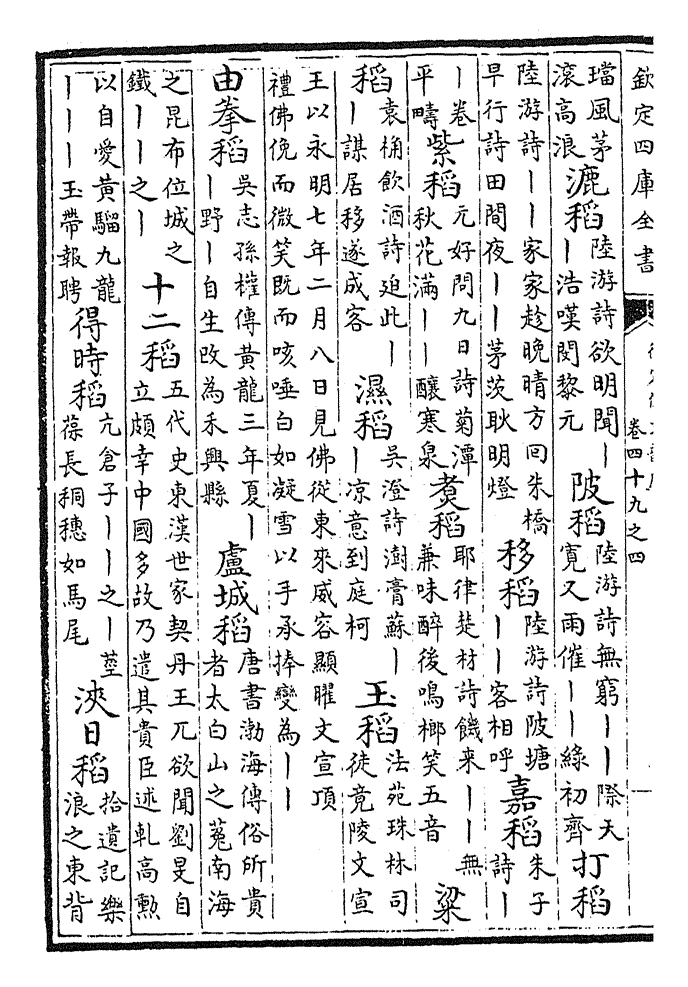 欽定四庫全書
卷四十九之四
璫風茅
滾高浪
漉稻
陸游詩欲明聞｜
｜浩嘆閔黎元
陂稻
陸游詩無窮｜｜際天
寛又雨催｜｜綠初齊
打稻
陸游詩｜｜家家趁晚晴方回朱橋
早行詩田間夜｜｜茅茨耿明燈
移稻
陸游詩陂塘
｜｜客相呼
嘉稻
朱子
詩｜
｜卷
平疇
紫稻
元好問九日詩菊潭
秋花滿｜｜釀寒泉
煑稻
耶律楚材詩饑來｜｜無
兼味醉後鳴榔笑五音
粱
稻
袁桷飲酒詩迫此｜
｜謀居移遂成客
濕稻
吳澄詩澍膏蘇｜
｜凉意到庭柯
玉稻
法苑珠林司
徒竟陵文宣
王以永明七年二月八日見佛從東來威容顯曜文宣頂
禮佛俛而微笑既而咳唾白如凝雪以手承捧變為｜｜
由拳稻
吳志孫權傳黃龍三年夏｜
｜野｜自生改為禾興縣
盧城稻
唐書渤海傳俗所貴
者太白山之菟南海
之昆布位城之
鐵｜｜之｜
十二稻
五代史東漢世家契丹王兀欲聞劉旻自
立頗幸中國多故乃遣其貴臣述軋高勲
以自愛黃騮九龍
｜｜｜玉帶報聘
得時稻
亢倉子｜｜之｜莖
葆長秱穗如馬尾
浹日稻
拾遺記樂
浪之東背